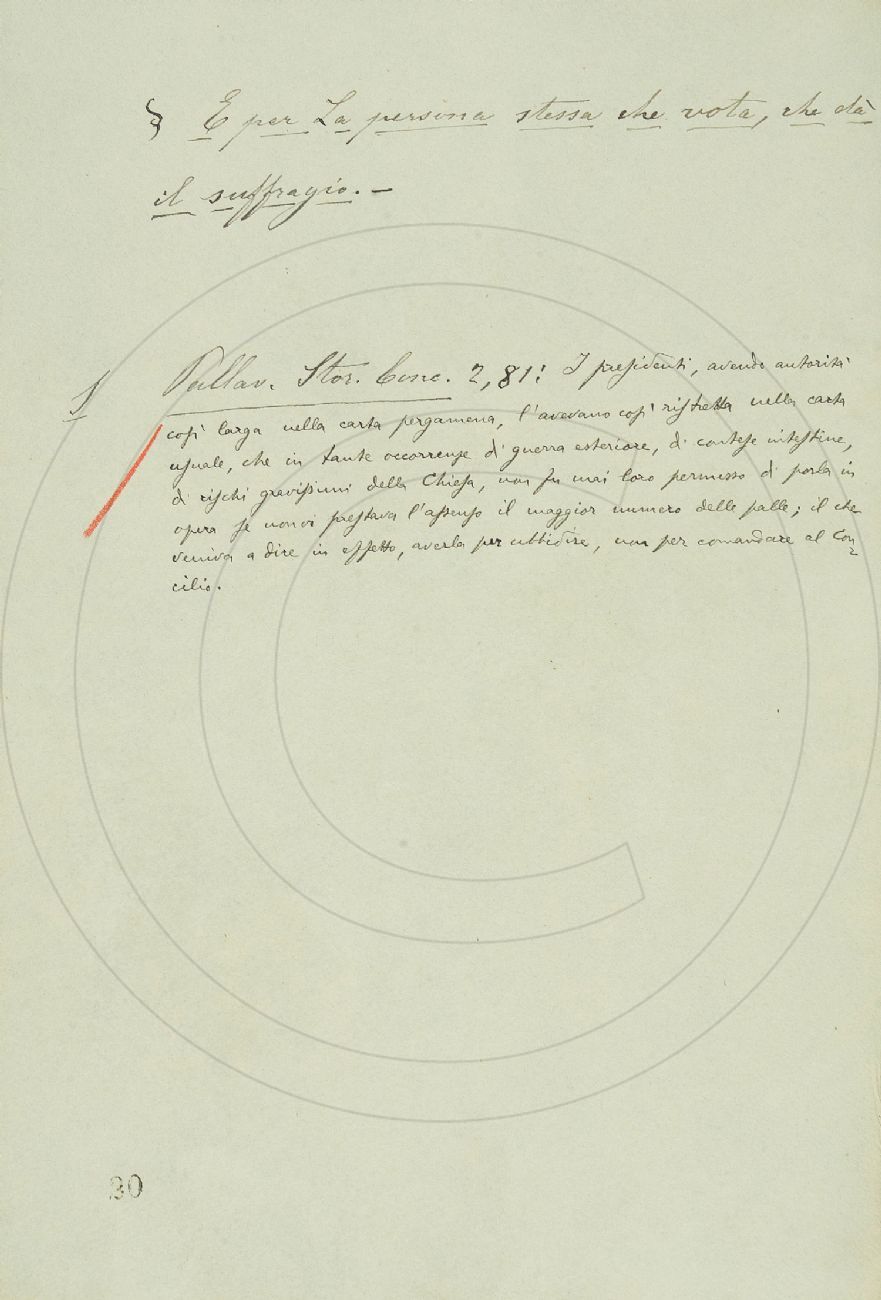 § E per La persona stessa che vota, che dà
il suffragio. –
1 Pallav. Stor. Conc. 2, 81: I preſidenti, avendo autorità
coſì larga nella carta pergamena, l'avevano coſì riſtretta nella carta
uſuale, che in tante occorrenze di guerra esteriore, di conteſe inteſtine,
di riſchi graviſſimi della Chieſa, non fu mai loro permesso di porla in
opera ſe non vi preſtava l'aſſenſo il maggior numero delle palle; il che
veniva a dire in effetto, averla per ubbidire, non per comandare al Con-
cilio.
30